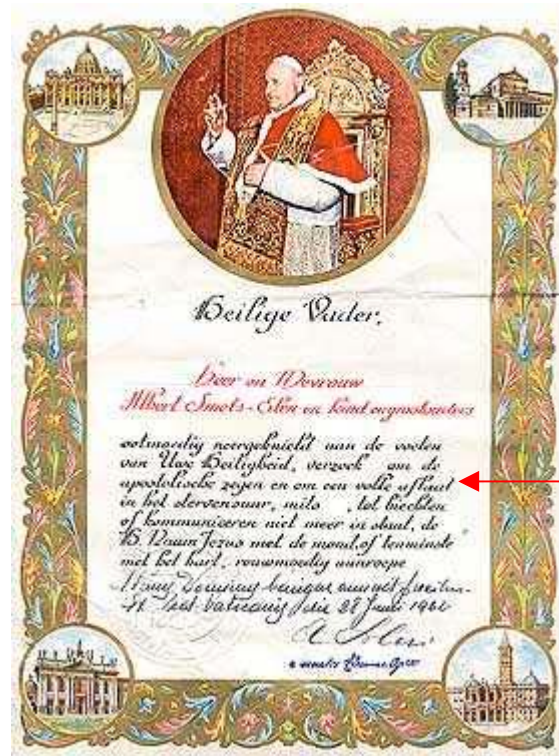 Heilige Vader,
Heer en Mevrouw
Albert Smets - Elen en kind
ootmoedig neergeknield aan de voeten
van Uwe Heiligheid, verzoek om de
apostolische zegen en om een volle aflaat
in het stervensuur, mits , tot biechten
of kommuniceren niet meer in staat, de
H. Naam Jezus met de mond, of tenminste
met het hart, rouwmoedig aanroepe
Dominus benigne annuit
28 Juni